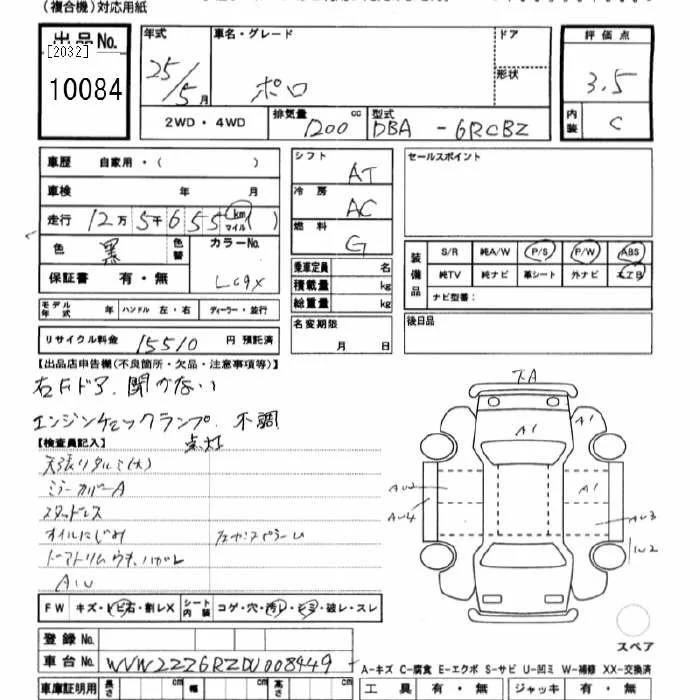 (複合機)対応用紙
出品No.
[2032]
10084
年式 25/5月
車名・グレード ポロ
ドア
形状
評価点 3.5
内装 C
2WD・4WD
排気量 1200 cc
型式 DBA - 6RCBZ
車歴 自家用・( )
車検 年 月
走行 12万5千655 km マイル( )
色 黒 色替 カラーNo. LC9X
保証書 有・無
モデル年式 年 ハンドル 左・右 ディーラー・並行
リサイクル料金 15510 円 預託済
シフト AT
冷房 AC
燃料 G
乗車定員 名
積載量 kg
総重量 kg
名変期限 月 日
セールスポイント
装備品 S/R 純A/W P/S P/W ABS
純TV 純ナビ 革シート 外ナビ エアB
ナビ型番:
後日品
【出品店申告欄(不良箇所・欠品・注意事項等)】
右Fドア.開かない
エンジンチェックランプ.不調
点灯
【検査員記入】
天張りタルミ(大)
ミラーカバーA
スタッドレス
オイルにじみ
ドアトリムウキ.ハガレ
AU
FW キズ・トビ石・割レX シート内装 コゲ・穴・汚レ・シミ・破レ・スレ
登録No.
車台No. WVWZZZ6RZDU008449
車庫証明用 長さ cm 幅 cm 高さ cm
A1
A1
AU2
AU4
A1
AU3
スペア
A-キズ C-腐食 E-エクボ S-サビ U-凹ミ W-補修 XX-交換済
工具 有・無 ジャッキ 有・無